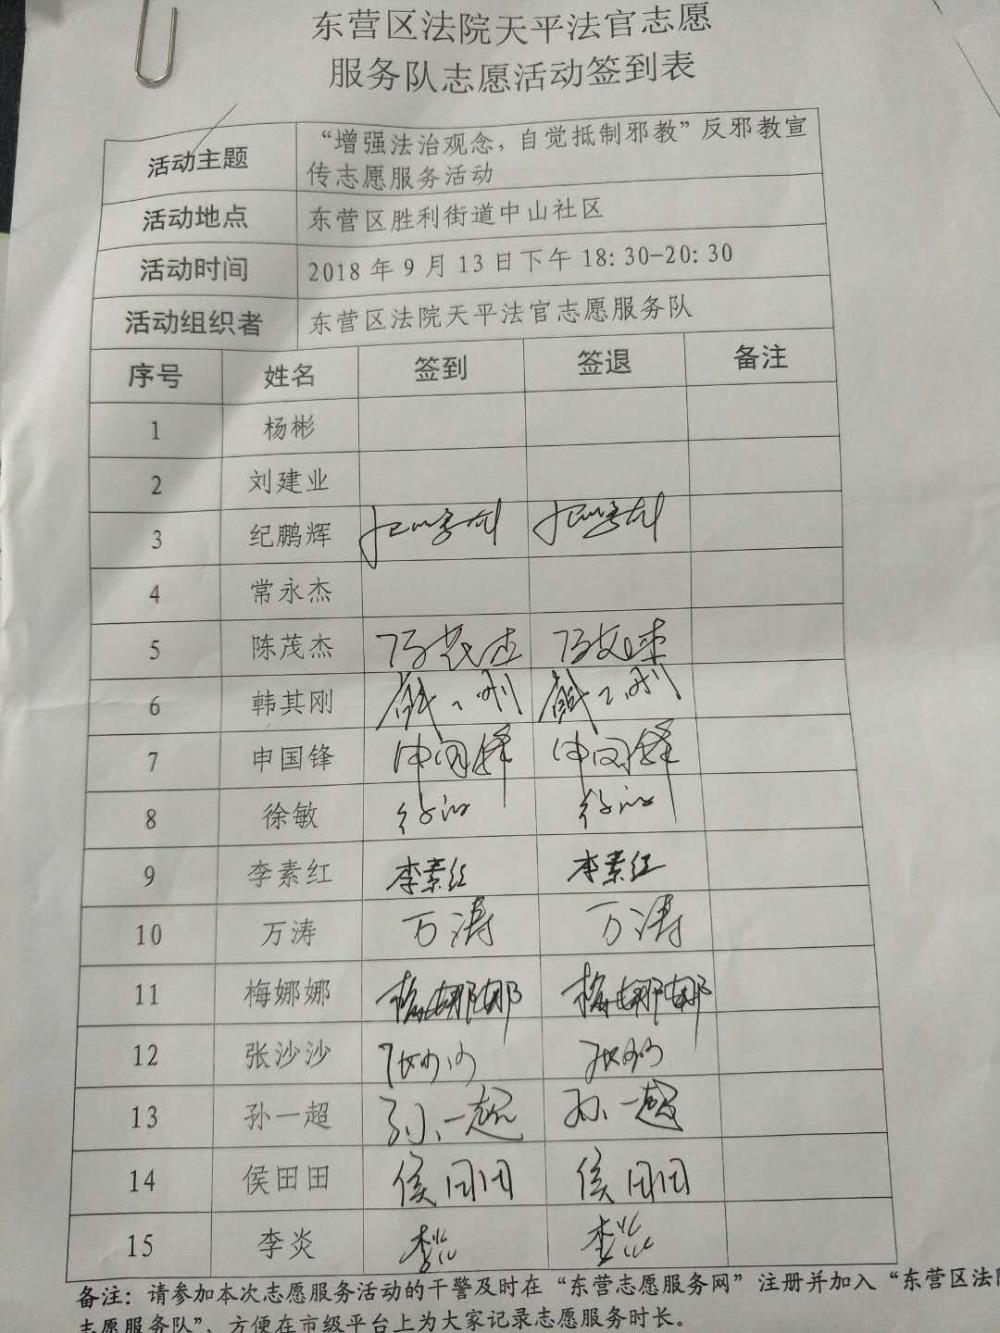 东营区法院天平法官志愿
服务队志愿活动签到表
活动主题
“增强法治观念，自觉抵制邪教”反邪教宣
传志愿服务活动
活动地点 东营区胜利街道中山社区
活动时间 2018 年 9 月 13 日下午 18:30-20:30
活动组织者 东营区法院天平法官志愿服务队
序号 姓名 签到 签退 备注
1 杨彬
2 刘建业
3 纪鹏辉
4 常永杰
5 陈茂杰
6 韩其刚
7 申国锋 申国锋 申国锋
8 徐敏
9 李素红 李素红 李素红
10 万涛 万涛 万涛
11 梅娜娜 梅娜娜 梅娜娜
12 张沙沙
13 孙一超 孙一超 孙一超
14 侯田田 侯田田 侯田田
15 李炎 李炎 李炎
备注：请参加本次志愿服务活动的干警及时在“东营志愿服务网”注册并加入“东营区法院
志愿服务队”，方便在市级平台上为大家记录志愿服务时长。